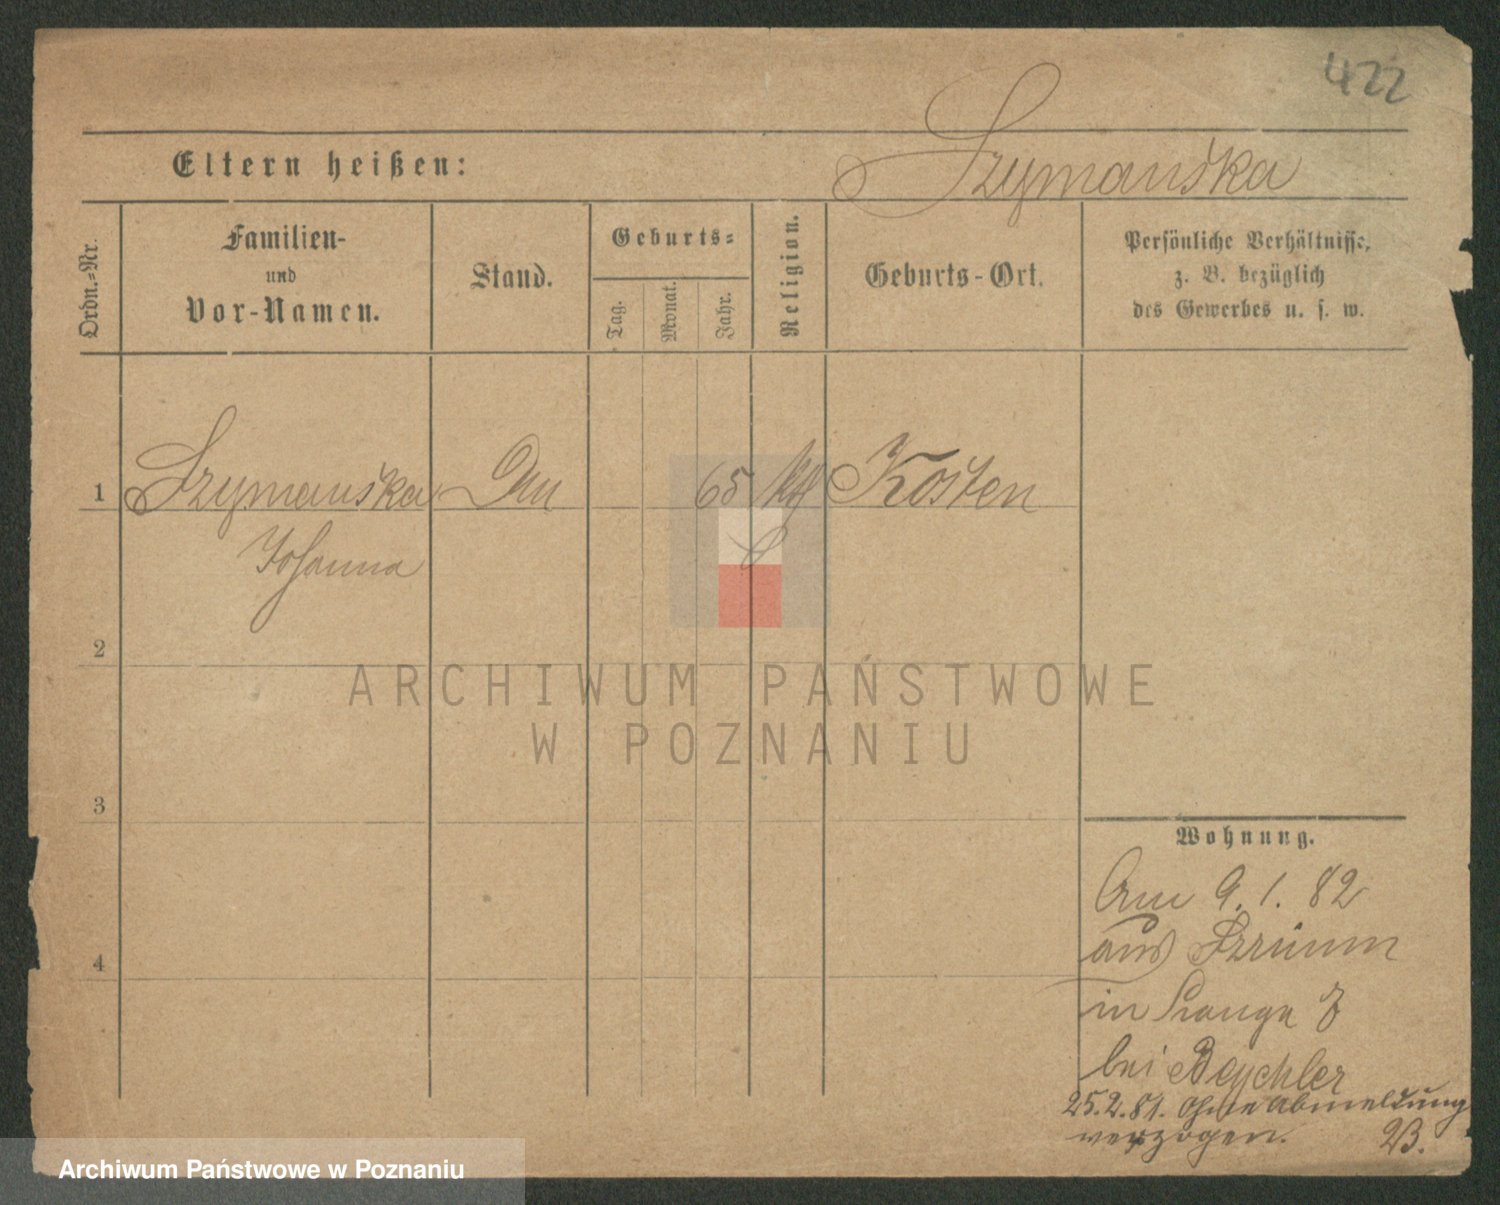 422
Eltern heißen:
Szymańska
Ordn.-Nr.
Familien-
und
Vor-Namen.
Stand.
Geburts-
Tag.
Monat.
Jahr.
Religion.
Geburts-Ort.
Persönliche Verhältnisse,
z. B. bezüglich
des Gewerbes u. s. w.
1 Szymańska 65 Kosten
Johanna
2
3
4
ARCHIWUM PAŃSTWOWE
W POZNANIU
Wohnung.
Am 9. 1. 82
aus
in
bei
25.2.81. Ohne Abmeldung
verzogen.
Archiwum Państwowe w Poznaniu